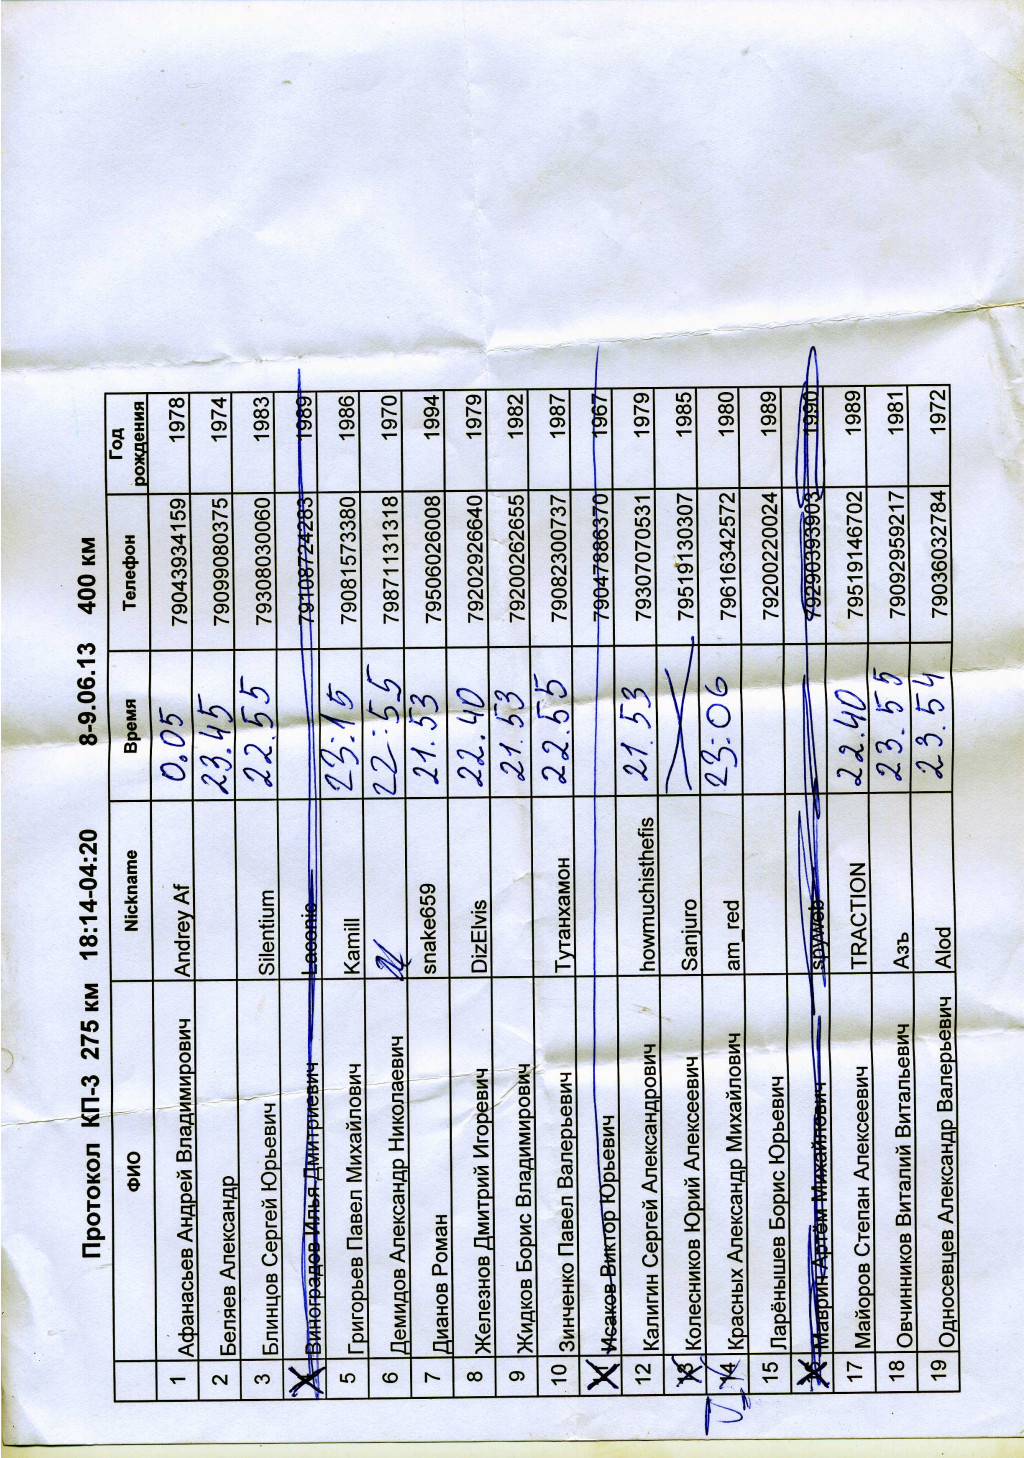 Протокол КП-3 275 км 18:14-04:20 8-9.06.13 400 км
ФИО Nickname Время Телефон Год рождения
1 Афанасьев Андрей Владимирович Andrey Af 0.05 79043934159 1978
2 Беляев Александр 23.45 79099080375 1974
3 Блинцов Сергей Юрьевич Silentium 22.55 79308030060 1983
4 Виноградов Илья Дмитриевич Laconic 79108724283 1989
5 Григорьев Павел Михайлович Kamill 23:15 79081573380 1986
6 Демидов Александр Николаевич 22:55 79871131318 1970
7 Дианов Роман snake659 21.53 79506026008 1994
8 Железнов Дмитрий Игоревич DizElvis 22.40 79202926640 1979
9 Жидков Борис Владимирович 21.53 79200262655 1982
10 Зинченко Павел Валерьевич Тутанхамон 22.55 79082300737 1987
11 Исаков Виктор Юрьевич 79047886370 1967
12 Калигин Сергей Александрович howmuchisthefis 21.53 79307070531 1979
13 Колесников Юрий Алексеевич Sanjuro 79519130307 1985
14 Красных Александр Михайлович am_red 23:06 79616342572 1980
15 Ларёнышев Борис Юрьевич 79200220024 1989
16 Маврин Артём Михайлович spyweb 79290393903 1990
17 Майоров Степан Алексеевич TRACTION 22.40 79519146702 1989
18 Овчинников Виталий Витальевич Азъ 23.55 79092959217 1981
19 Односевцев Александр Валерьевич Alod 23.54 79036032784 1972